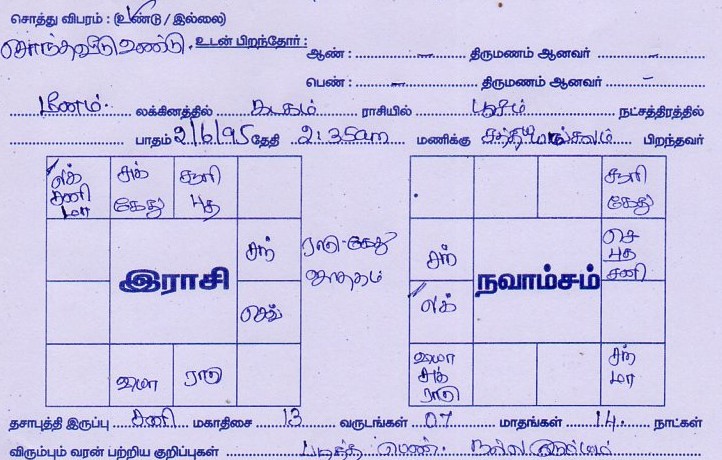 சொத்து விபரம் : (உண்டு / இல்லை)
சொந்தவீடு உண்டு. உடன் பிறந்தோர் : ஆண் : – திருமணம் ஆனவர் –
பெண் : – திருமணம் ஆனவர் –
மீனம். லக்கினத்தில் கடகம் ராசியில் பூசம் நட்சத்திரத்தில்
பாதம் 2/6/95 தேதி 2:35am மணிக்கு பிறந்தவர்
லக் சனி மா
சுக் கேது
சூரி புத
சந்
செவ்
ராகு
இராசி
ராகு-கேது ஜாதகம்
சூரி கேது
சந்
செ புத சனி
லக்
சுக் ராகு
மா
நவாம்சம்
தசாபுத்தி இருப்பு சனி மகாதிசை 13 வருடங்கள் 07 மாதங்கள் 14 நாட்கள்
விரும்பும் வரன் பற்றிய குறிப்புகள் படித்த பெண். நல்ல குடும்பம்